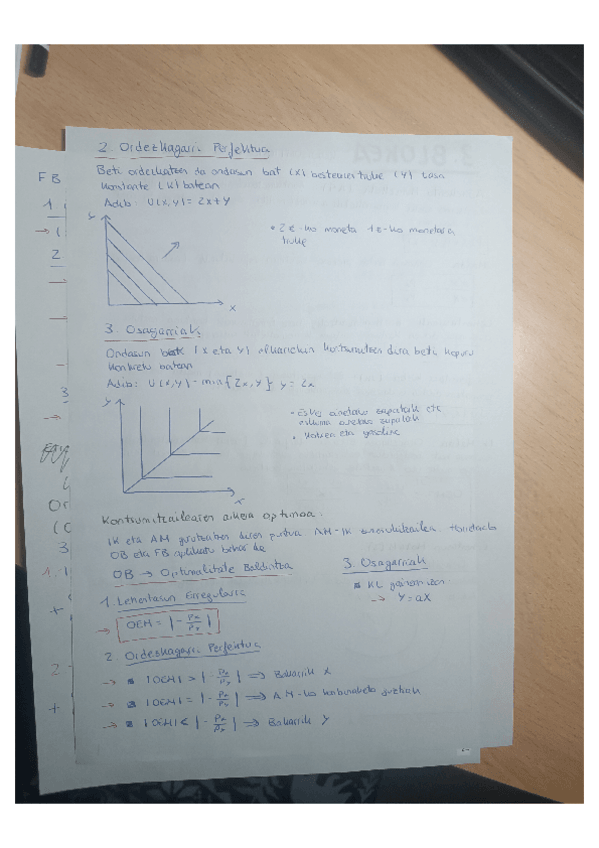 2. Ordezkagarri Perfektua
Beti ordezkatzen da ondasun bat (X) bestearen truke (Y) tasa
konstante (K) batean
Adib: U(x,y) = 2x+y
y
x
• 2€-ko moneta 1€-ko moneta
truke
3. Osagarriak
Ondasun biak (x eta y) elkarrekin kontsumitzen dira beti, kopuru
konkretu batean
Adib: U(x,y) = min{2x,y} y = 2x
y
x
• Eskuinetako zapatak eta
zapatak
• Kotxea eta gasolina
Kontsumitzailearen aukera optimoa:
IK eta AM gurutzatzen diren puntua
OB eta FB aplikatu behar da
OB → Optimalitate Baldintza
1. Lehentasun Erregularra
→ OEM = |- Px/Py |
2. Ordezkagarri Perfektua
→ |OEM| > |- Px/Py | ⇒ Bakarrik X
→ |OEM| = |- Px/Py | ⇒ AM-ko konbinaketa guztiak
→ |OEM| < |- Px/Py | ⇒ Bakarrik Y
3. Osagarriak
→ Y = aX
FB
1
2
3